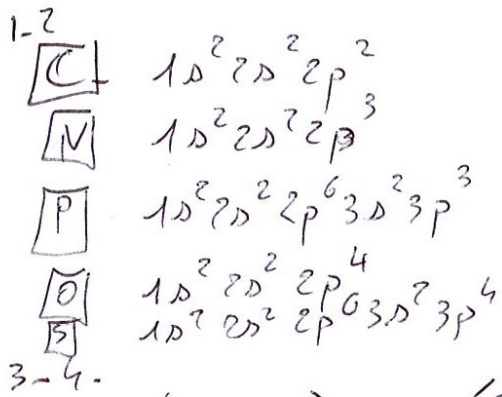 1-2
C 1s² 2s² 2p²
N 1s² 2s² 2p³
P 1s² 2s² 2p⁶ 3s² 3p³
O 1s² 2s² 2p⁴
S 1s² 2s² 2p⁶ 3s² 3p⁴
3-4-